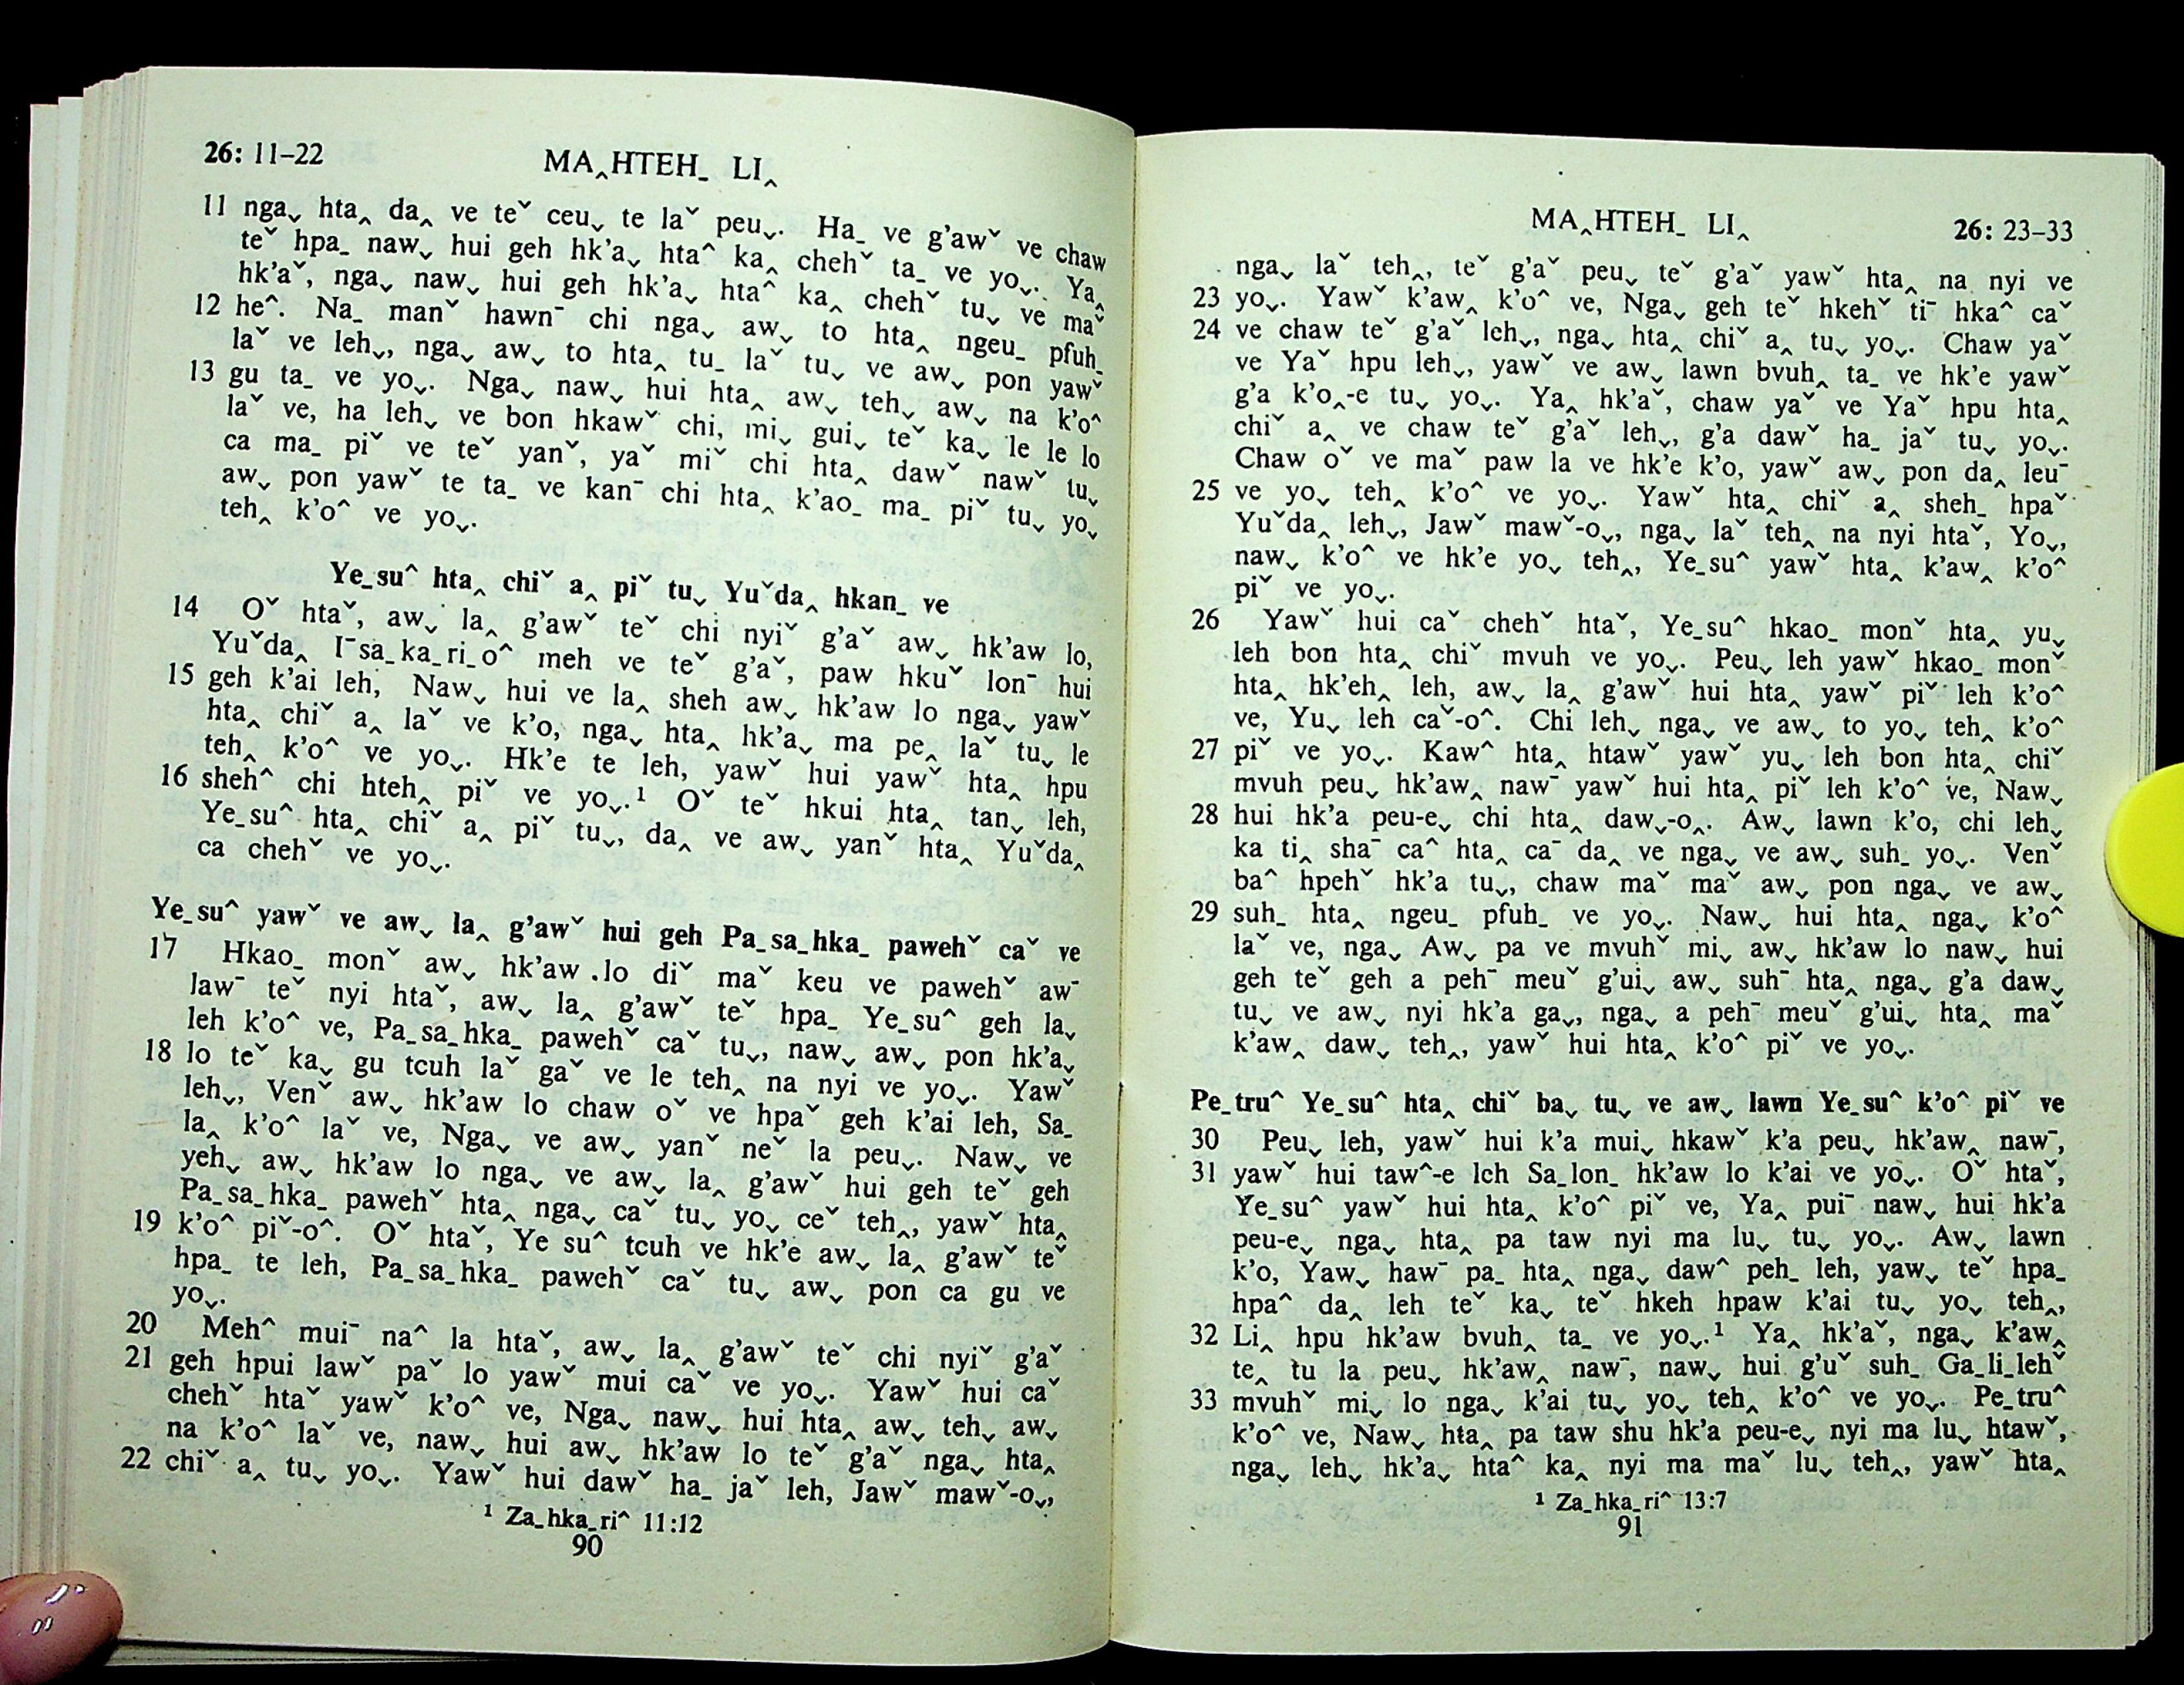 26: 11–22
MA‸HTEH_ LI‸
11 nga⌄ hta‸ da‸ ve teˇ ceu⌄ te laˇ peu⌄. Ha_ ve g'awˇ ve chaw
teˇ hpa_ naw⌄ hui geh hk'a⌄ hta^ ka‸ chehˇ ta_ ve yo⌄. Ya‸
hk'aˇ, nga⌄ naw⌄ hui geh hk'a⌄ hta^ ka‸ chehˇ tu⌄ ve maˇ
12 he^. Na_ manˇ hawn¯ chi nga⌄ aw⌄ to hta‸ ngeu_ pfuh_
laˇ ve leh⌄, nga⌄ aw⌄ to hta‸ tu_ laˇ tu⌄ ve aw⌄ pon yawˇ
13 gu ta_ ve yo⌄. Nga⌄ naw⌄ hui hta‸ aw⌄ teh⌄ aw⌄ na k'o^
laˇ ve, ha leh⌄ ve bon hkawˇ chi, mi⌄ gui⌄ teˇ ka⌄ le le lo
ca ma_ piˇ ve teˇ yanˇ, yaˇ miˇ chi hta‸ dawˇ nawˇ tu⌄
aw⌄ pon yawˇ te ta_ ve kan¯ chi hta‸ k'ao_ ma_ piˇ tu⌄ yo⌄
teh‸ k'o^ ve yo⌄.
Ye_su^ hta‸ chiˇ a‸ piˇ tu⌄ Yuˇda‸ hkan_ ve
14 Oˇ htaˇ, aw⌄ la‸ g'awˇ teˇ chi nyiˇ g'aˇ aw⌄ hk'aw lo,
Yuˇda‸ I¯sa_ka_ri_o^ meh ve teˇ g'aˇ, paw hkuˇ lon¯ hui
15 geh k'ai leh, Naw⌄ hui ve la‸ sheh aw⌄ hk'aw lo nga⌄ yawˇ
hta‸ chiˇ a‸ laˇ ve k'o, nga⌄ hta‸ hk'a⌄ ma pe‸ laˇ tu⌄ le
teh‸ k'o^ ve yo⌄. Hk'e te leh, yawˇ hui yawˇ hta‸ hpu
16 sheh^ chi hteh‸ piˇ ve yo⌄.¹ Oˇ teˇ hkui hta‸ tan⌄ leh,
Ye_su^ hta‸ chiˇ a‸ piˇ tu⌄, da‸ ve aw⌄ yanˇ hta‸ Yuˇda‸
ca chehˇ ve yo⌄.
Ye_su^ yawˇ ve aw⌄ la‸ g'awˇ hui geh Pa_sa_hka_ pawehˇ caˇ ve
17 Hkao_ monˇ aw⌄ hk'aw lo diˇ maˇ keu ve pawehˇ aw¯
law¯ teˇ nyi htaˇ, aw⌄ la‸ g'awˇ teˇ hpa_ Ye_su^ geh la⌄
leh k'o^ ve, Pa_sa_hka_ pawehˇ caˇ tu⌄, naw⌄ aw⌄ pon hk'a⌄
18 lo teˇ ka⌄ gu tcuh laˇ gaˇ ve le teh‸ na nyi ve yo⌄. Yawˇ
leh⌄, Venˇ aw⌄ hk'aw lo chaw oˇ ve hpaˇ geh k'ai leh, Sa_
la‸ k'o^ laˇ ve, Nga⌄ ve aw⌄ yanˇ neˇ la peu⌄. Naw⌄ ve
yeh⌄ aw⌄ hk'aw lo nga⌄ ve aw⌄ la‸ g'awˇ hui geh teˇ geh
Pa_sa_hka_ pawehˇ hta‸ nga⌄ caˇ tu⌄ yo⌄ ceˇ teh‸, yawˇ hta‸
19 k'o^ piˇ-o^. Oˇ htaˇ, Ye su^ tcuh ve hk'e aw⌄ la‸ g'awˇ teˇ
hpa_ te leh, Pa_sa_hka_ pawehˇ caˇ tu⌄ aw⌄ pon ca gu ve
yo⌄.
20 Meh^ mui¯ na^ la htaˇ, aw⌄ la‸ g'awˇ teˇ chi nyiˇ g'aˇ
21 geh hpui lawˇ paˇ lo yawˇ mui caˇ ve yo⌄. Yawˇ hui caˇ
chehˇ htaˇ yawˇ k'o^ ve, Nga⌄ naw⌄ hui hta‸ aw⌄ teh⌄ aw⌄
na k'o^ laˇ ve, naw⌄ hui aw⌄ hk'aw lo teˇ g'aˇ nga⌄ hta‸
22 chiˇ a‸ tu⌄ yo⌄. Yawˇ hui dawˇ ha_ jaˇ leh, Jawˇ mawˇ-o⌄,
¹ Za_hka_ri^ 11:12
90
MA‸HTEH_ LI‸
26: 23–33
nga⌄ laˇ teh‸, teˇ g'aˇ peu⌄ teˇ g'aˇ yawˇ hta‸ na nyi ve
23 yo⌄. Yawˇ k'aw‸ k'o^ ve, Nga⌄ geh teˇ hkehˇ ti¯ hka^ caˇ
24 ve chaw teˇ g'aˇ leh⌄, nga⌄ hta‸ chiˇ a‸ tu⌄ yo⌄. Chaw yaˇ
ve Yaˇ hpu leh⌄, yawˇ ve aw⌄ lawn bvuh‸ ta_ ve hk'e yawˇ
g'a k'o‸-e tu⌄ yo⌄. Ya‸ hk'aˇ, chaw yaˇ ve Yaˇ hpu hta‸
chiˇ a‸ ve chaw teˇ g'aˇ leh⌄, g'a dawˇ ha_ jaˇ tu⌄ yo⌄.
Chaw oˇ ve maˇ paw la ve hk'e k'o, yawˇ aw⌄ pon da‸ leu¯
25 ve yo⌄ teh‸ k'o^ ve yo⌄. Yawˇ hta‸ chiˇ a‸ sheh_ hpaˇ
Yuˇda‸ leh⌄, Jawˇ mawˇ-o⌄, nga⌄ laˇ teh‸ na nyi htaˇ, Yo⌄,
naw⌄ k'o^ ve hk'e yo⌄ teh‸, Ye_su^ yawˇ hta‸ k'aw‸ k'o^
piˇ ve yo⌄.
26 Yawˇ hui caˇ chehˇ htaˇ, Ye_su^ hkao_ monˇ hta‸ yu⌄
leh bon hta‸ chiˇ mvuh ve yo⌄. Peu⌄ leh yawˇ hkao_ monˇ
hta‸ hk'eh‸ leh, aw⌄ la‸ g'awˇ hui hta‸ yawˇ piˇ leh k'o^
ve, Yu⌄ leh caˇ-o^. Chi leh⌄ nga⌄ ve aw⌄ to yo⌄ teh‸ k'o^
27 piˇ ve yo⌄. Kaw^ hta‸ htawˇ yawˇ yu⌄ leh bon hta‸ chiˇ
mvuh peu⌄ hk'aw‸ naw¯ yawˇ hui hta‸ piˇ leh k'o^ ve, Naw⌄
28 hui hk'a peu-e⌄ chi hta‸ daw⌄-o‸. Aw⌄ lawn k'o, chi leh⌄
ka ti‸ sha¯ ca^ hta‸ ca¯ da‸ ve nga⌄ ve aw⌄ suh_ yo⌄. Venˇ
ba^ hpehˇ hk'a tu⌄, chaw maˇ maˇ aw⌄ pon nga⌄ ve aw⌄
29 suh_ hta‸ ngeu_ pfuh_ ve yo⌄. Naw⌄ hui hta‸ nga⌄ k'o^
laˇ ve, nga⌄ Aw⌄ pa ve mvuhˇ mi⌄ aw⌄ hk'aw lo naw⌄ hui
geh teˇ geh a peh¯ meuˇ g'ui⌄ aw⌄ suh¯ hta‸ nga⌄ g'a daw⌄
tu⌄ ve aw⌄ nyi hk'a ga⌄, nga⌄ a peh¯ meuˇ g'ui⌄ hta‸ maˇ
k'aw‸ daw⌄ teh‸, yawˇ hui hta‸ k'o^ piˇ ve yo⌄.
Pe_tru^ Ye_su^ hta‸ chiˇ ba⌄ tu⌄ ve aw⌄ lawn Ye_su^ k'o^ piˇ ve
30 Peu⌄ leh, yawˇ hui k'a mui⌄ hkawˇ k'a peu⌄ hk'aw‸ naw¯,
31 yawˇ hui taw^-e lch Sa_lon_ hk'aw lo k'ai ve yo⌄. Oˇ htaˇ,
Ye_su^ yawˇ hui hta‸ k'o^ piˇ ve, Ya‸ pui¯ naw⌄ hui hk'a
peu-e⌄ nga⌄ hta‸ pa taw nyi ma lu⌄ tu⌄ yo⌄. Aw⌄ lawn
k'o, Yaw⌄ haw¯ pa_ hta‸ nga⌄ daw^ peh_ leh, yaw⌄ teˇ hpa_
hpa^ da‸ leh teˇ ka⌄ teˇ hkeh hpaw k'ai tu⌄ yo⌄ teh‸,
32 Li‸ hpu hk'aw bvuh‸ ta_ ve yo⌄.¹ Ya‸ hk'aˇ, nga⌄ k'aw‸
te‸ tu la peu⌄ hk'aw‸ naw¯, naw⌄ hui g'uˇ suh_ Ga_li_lehˇ
33 mvuhˇ mi⌄ lo nga⌄ k'ai tu⌄ yo⌄ teh‸ k'o^ ve yo⌄. Pe_tru^
k'o^ ve, Naw⌄ hta‸ pa taw shu hk'a peu-e⌄ nyi ma lu⌄ htawˇ,
nga⌄ leh⌄ hk'a⌄ hta^ ka‸ nyi ma maˇ lu⌄ teh‸, yawˇ hta‸
¹ Za_hka_ri^ 13:7
91